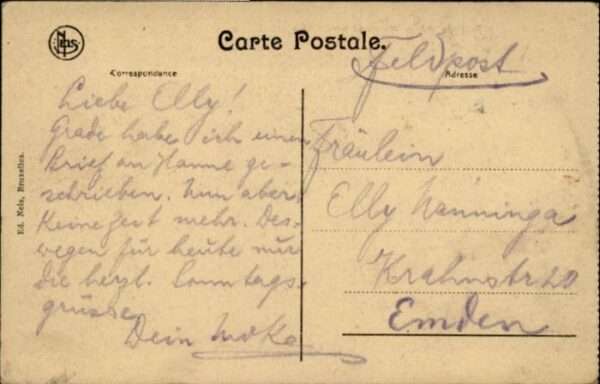 Nels
Carte Postale.
Feldpost
Correspondance
Adresse
Liebe Elly!
Grade habe ich einen
Brief an Hanne ge-
schrieben. Nun aber
keine Zeit mehr. Des-
wegen für heute nur
die herzl. Sonntags-
grüsse
Dein
Fräulein
Elly Nanninga
Krahnstr 20
Emden
Ed. Nels, Bruxelles.